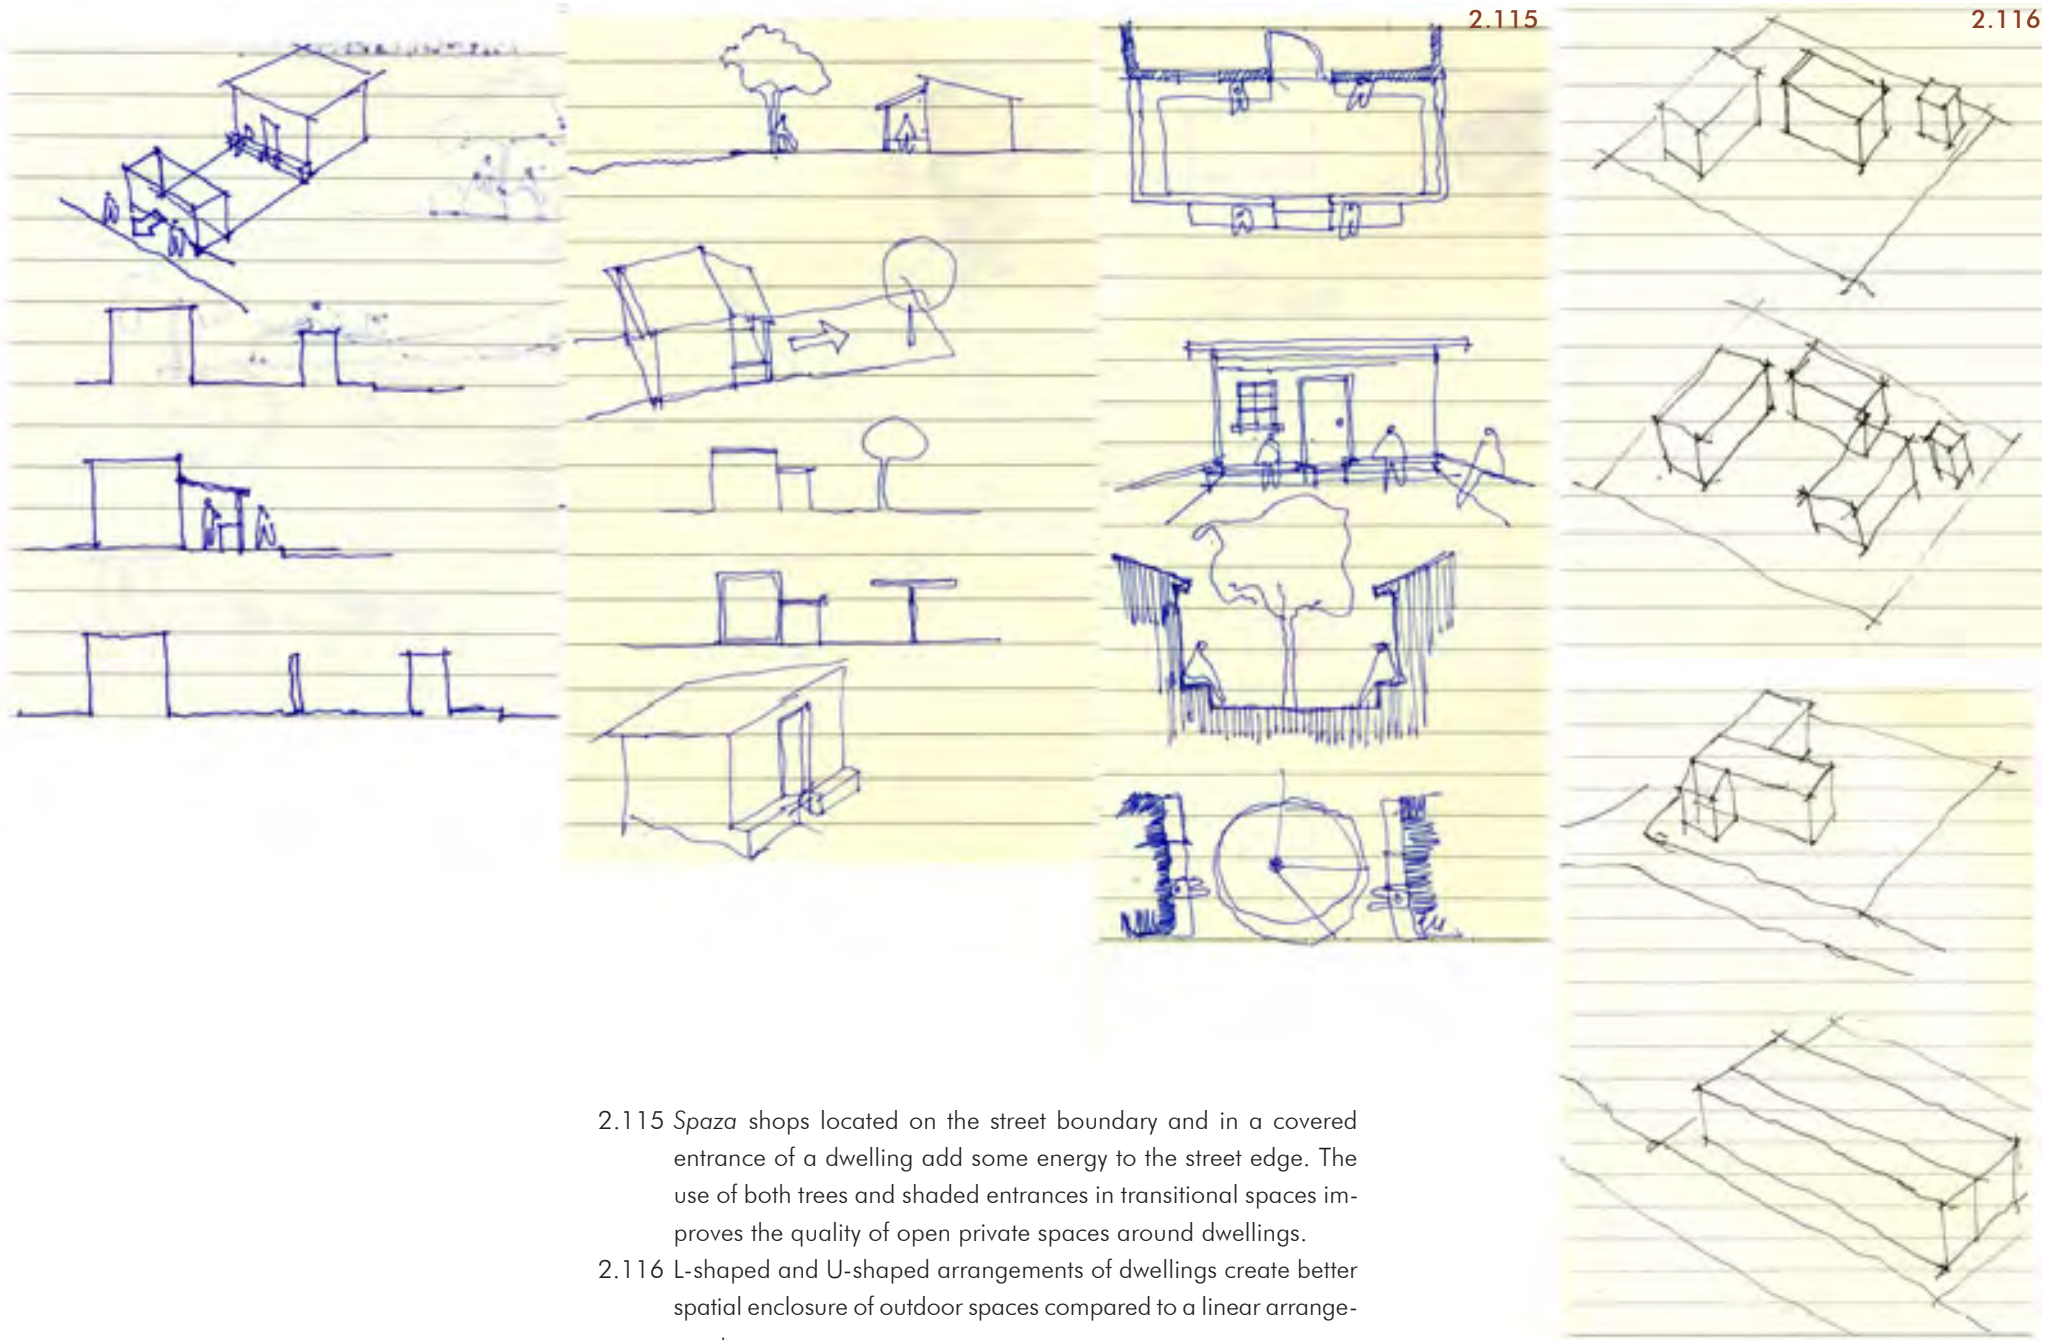 2.115
2.116
2.115 Spaza shops located on the street boundary and in a covered
entrance of a dwelling add some energy to the street edge. The
use of both trees and shaded entrances in transitional spaces im-
proves the quality of open private spaces around dwellings.
2.116 L-shaped and U-shaped arrangements of dwellings create better
spatial enclosure of outdoor spaces compared to a linear arrange-